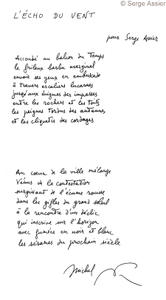 © Serge Assier
L'ÉCHO DU VENT
pour Serge Assier
Accoudé au balcon du Temps
le frileux barbu marginal
envoie ses yeux en embuscade
à travers escaliers lucarnes
jusqu'aux énigmes des impasses
entre les rochers et les toits
les peignes tordus des antennes
et les cliquetis des cordages
Au cœur de la ville mélange
Vénus de la contestation
surgissant de l'écume rousse
dans les gifles du grand soleil
à la rencontre d'un déclic
qui inscrive sur l'horizon
avec fumées en noir et blanc
les sésames du prochain siècle
Michel